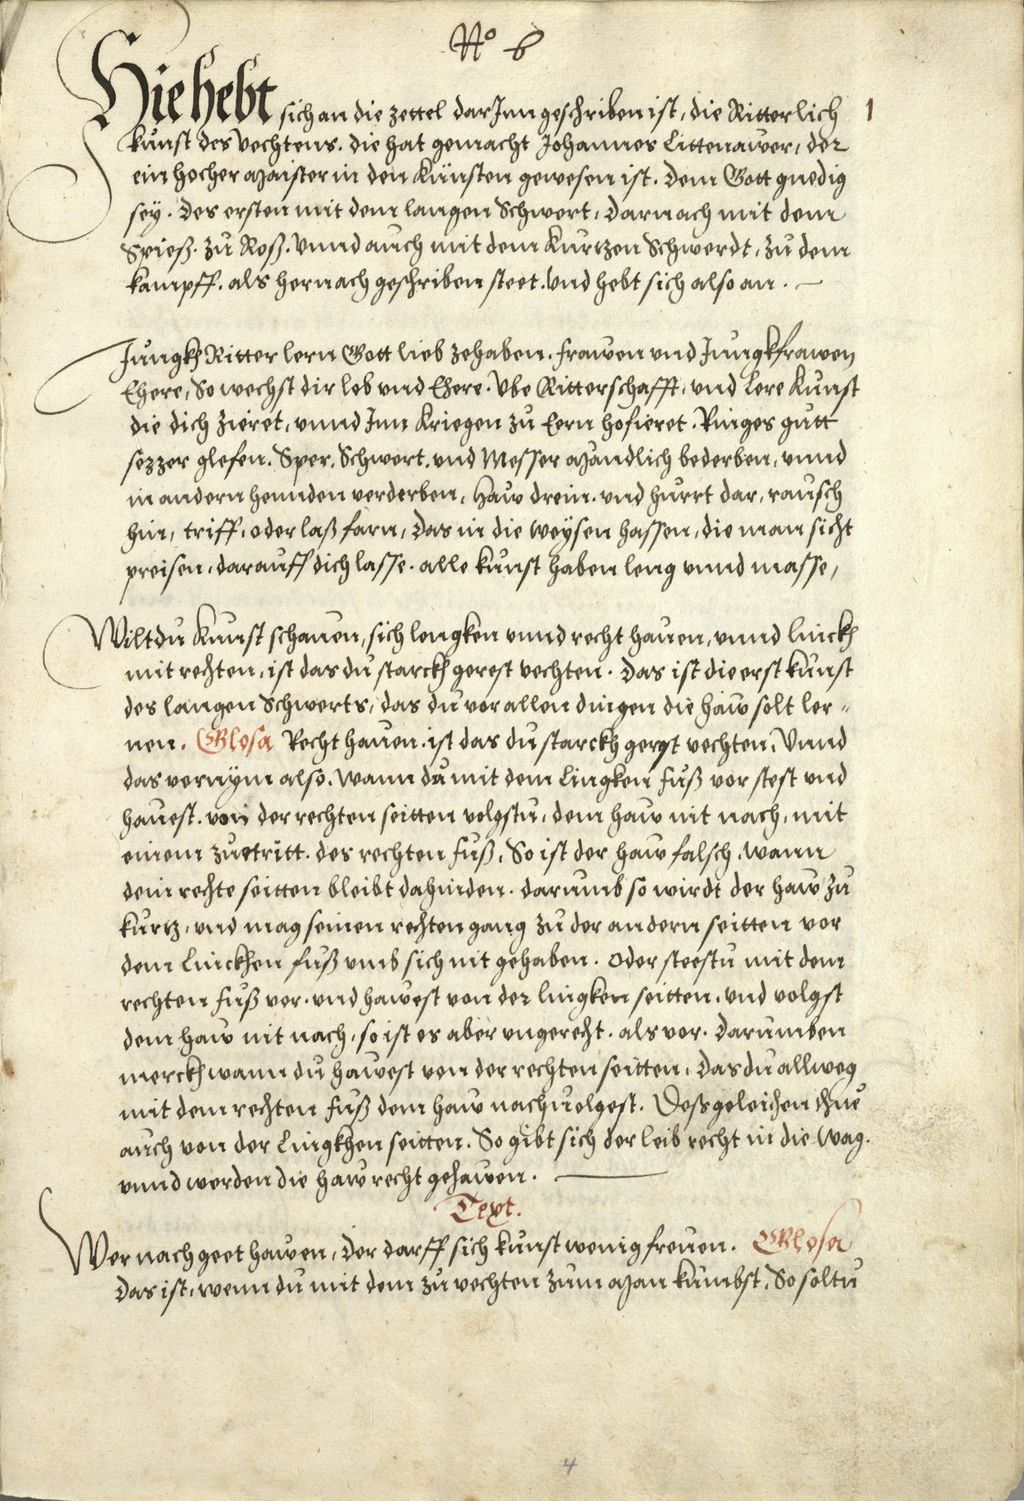 No 6
Hie hebt sich an die zettel dar Inn geschriben ist, die Ritterlich 1
kunst des vechtens. die hat gemacht Johannes Littenawer, der
ein hocher Maister in den Künsten gewesen ist. dem Gott gnedig
sey. des ersten mit dem langen Schwert, darnach mit dem
Spieß. zu Roß. vnnd auch mit dem Kurtzen Schwerdt, zu dem
kampff. als hernach geschriben steet. vnd hebt sich also an.
Jungkh Ritter lern Gott lieb zehaben. frawen vnd Jungkfrawen
Ehere, So wechst dir lob vnd Ehere. Vbe Ritterschafft, vnd lere Kunst
die dich zieret, vnnd Inn Kriegen zu Eern hofieret. Ringes gutt
fezzer glefen. Sper, Schwert. vnd Messer Mandlich bederben, vnnd
in andern hennden verderben, Haw drein. vnd hurrt dar, rausch
hin, triff, oder laß farn, das in die weysen hassen, die man sicht
preisen, darauff dich lasse. alle kunst haben leng vnnd masse,
Wiltdu Kunst schauen, sich lengken vnnd recht hauen, vnnd linckh
mit rechten, ist das du starckh gerest vechten. Das ist die erst kunst
des langen Schwerts, das du vor allen dingen die haw solt ler-
nen. Glosa Recht hauen. ist das du starckh gerest vechten, Vnnd
das vernÿm also. wann du mit dem Lingken fuß vor stest vnd
hauest. von der rechten seitten volgstu, dem haw nit nach, mit
einem zuetritt. des rechten fuß, So ist der haw falsch. wann
dein rechte seitten bleibt dahinden. darumb so wirdt der haw zu
kurtz, vnd mag seinen rechten gang zu der andern seitten vor
dem Linckhen fuß vmb sich nit gehaben. Oder steestu mit dem
rechten fuß vor. vnd hawest von der lingken seitten. vnd volgst
dem haw nit nach, so ist es aber vngerecht. als vor. Darumben
merckh wann du hawest von der rechten seitten, das du allweg
mit dem rechten fuß dem haw nachuolgest. Dessgeleichen thue
auch von der Lingkhen seitten. So gibt sich der leib recht in die wag.
vnnd werden die haw recht gehawen.
Text.
Wer nach geet hawen, der darff sich kunst wenig freuen. Glosa
Das ist, wenn du mit dem zu vechten zum Man kumbst, So soltu
4